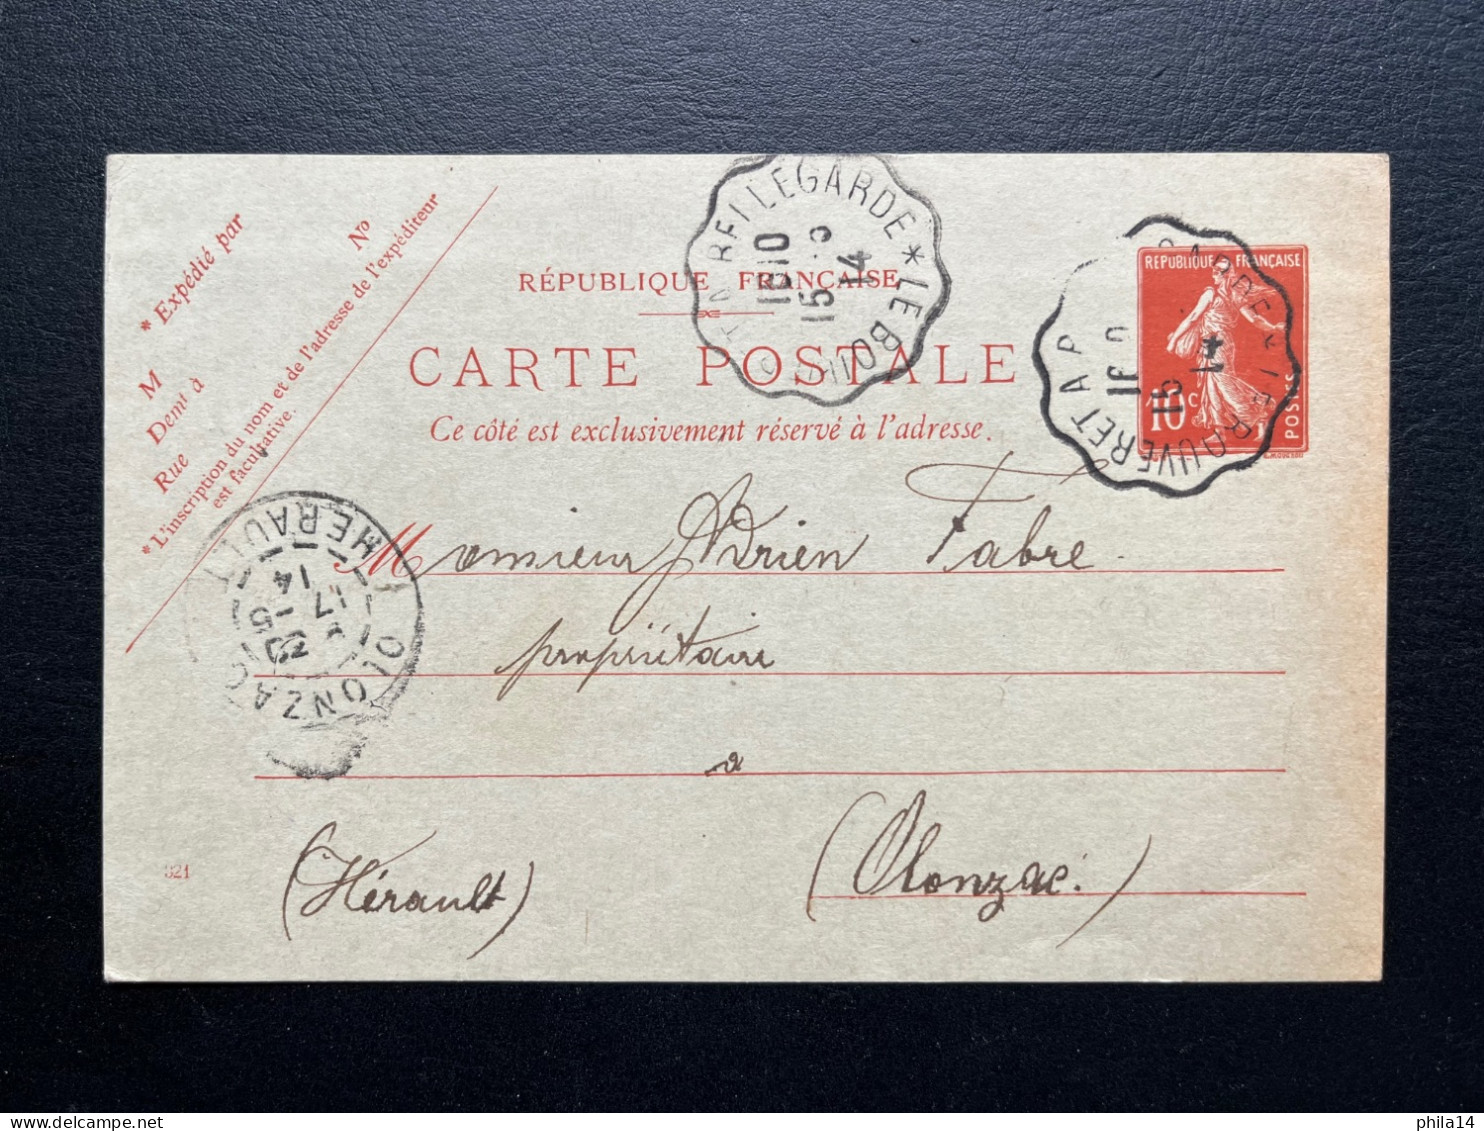 * Expédié par
M
Demt à
Rue
No
* L'inscription du nom et de l'adresse de l'expéditeur
est facultative.
RÉPUBLIQUE FRANÇAISE
CARTE POSTALE
Ce côté est exclusivement réservé à l'adresse.
BELLEGARDE * LE BOU
15 10
15 - 5
14
RÉPUBLIQUE FRANÇAISE
10 c
POSTES
LE BRAUVERET A P
15
14
OLONZAC
HERAULT
17 - 5
14
Monsieur Adrien Fabre.
propriétaire
a
(Olonzac.)
(Hérault)
321
phila14